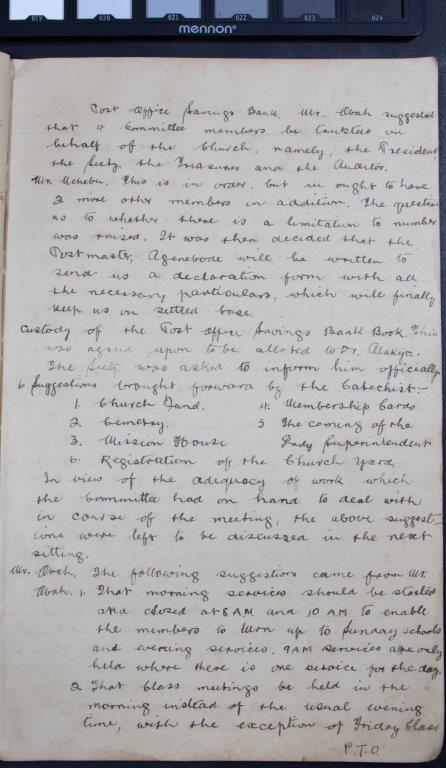 019 020 021 022 023 024
mennon®
Post Office Savings Bank. Mr. Obah suggested
that 4 Committee members be trustees on
behalf of the Church, namely, the President
the Secty, the Treasurer and the Auditor.
Mr. Uchebu. This is in order, but we ought to have
2 more other members in addition. The question
as to whether there is a limitation to number
was raised. It was then decided that the
Postmaster, Agenebode will be written to
send us a declaration form with all
the necessary particulars, which will finally
keep us on settled base.
Custody of the Post Office Savings Bank Book. This
was agreed upon to be alloted to Dr. Alakija.
The Secty was asked to inform him officially
6 Suggestions brought forward by the Catechist:-
1. Church Fund. 4. Membership Cards
2 Cemetry. 5 The coming of the
3. Mission House Lady Superintendent
6. Registration of the Church Yard.
In view of the adequacy of work which
the Committee had on hand to deal with
in course of the meeting, the above suggest-
ions were left to be discussed in the next
sitting.
Mr. Obah. The following suggestions came from Mr.
Obah. 1. That morning services should be started
and closed at 8 AM and 10 AM to enable
the members to turn up to Sunday schools
and evening services. 9AM services are only
held where there is one service for the day.
2 That Class meetings be held in the
morning instead of the usual evening
time, with the exception of Friday Class
P.T.O.